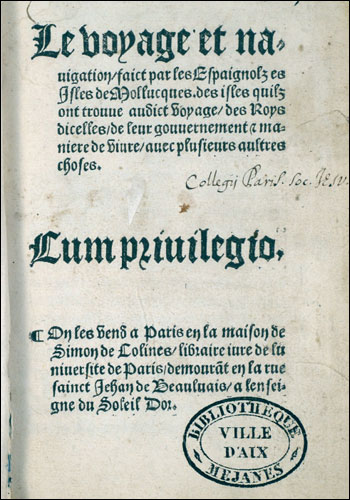 Le voyage et na-
uigation/faict par les Espaignolz es
Isles de Mollucques. des isles quilz
ont trouue audict voyage/des Roys
dicelles/de leur gouuernement & ma-
niere de viure/auec plusieurs aultres
choses.
Collegij Paris. Soc. JESU.
Cum priuilegio.
¶ On les vend a Paris en la maison de
Simon de Colines/libraire iure de lu
niuersite de Paris/demourãt en la rue
sainct Jehan de Beauluais/a lensei-
gne du Soleil Dor.
BIBLIOTHEQUE
VILLE
D'AIX
MEJANES